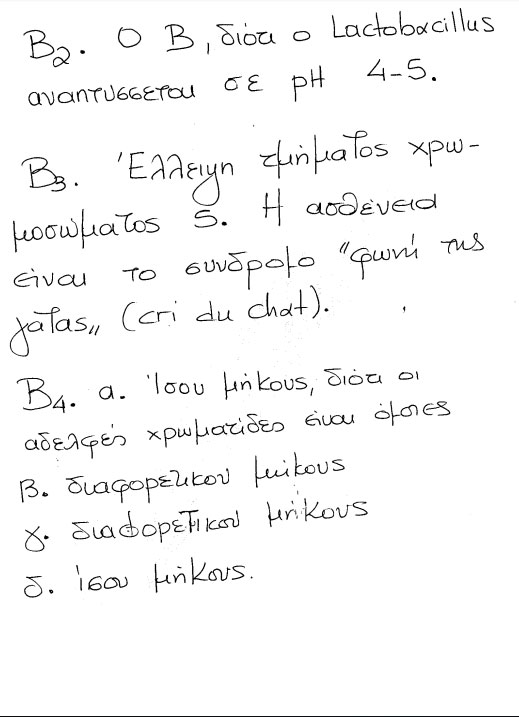 Β2. Ο Β, διότι ο Lactobacillus
αναπτύσσεται σε pH 4-5.
Β3. Έλλειψη τμήματος χρω-
μοσώματος 5. Η ασθένεια
είναι το σύνδρομο "φωνή της
γάτας" (cri du chat).
Β4. α. Ίσου μήκους, διότι οι
αδελφές χρωματίδες είναι όμοιες
β. διαφορετικού μήκους
γ. διαφορετικού μήκους
δ. ίσου μήκους.